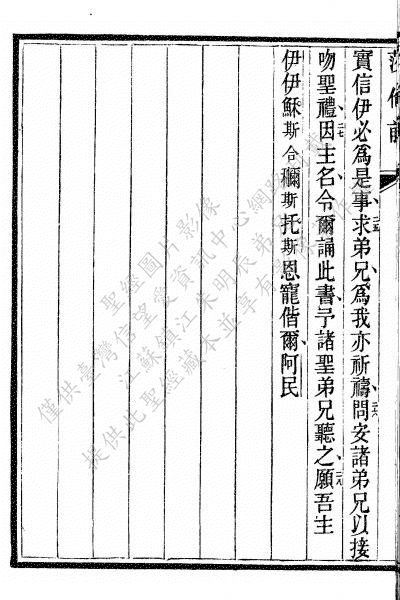 莎倫前
實信伊必爲是事求弟兄爲我亦祈禱問安諸弟兄以接
吻聖禮因主名令爾誦此書予諸聖弟兄聽之願吾主
伊伊穌斯合穪斯托斯恩寵偕爾阿民
聖經圖片影像
僅供臺灣信望愛資訊中心網路刊載
江蘇鎮江朱明辰弟弟
提供此聖經藏本並享有著作